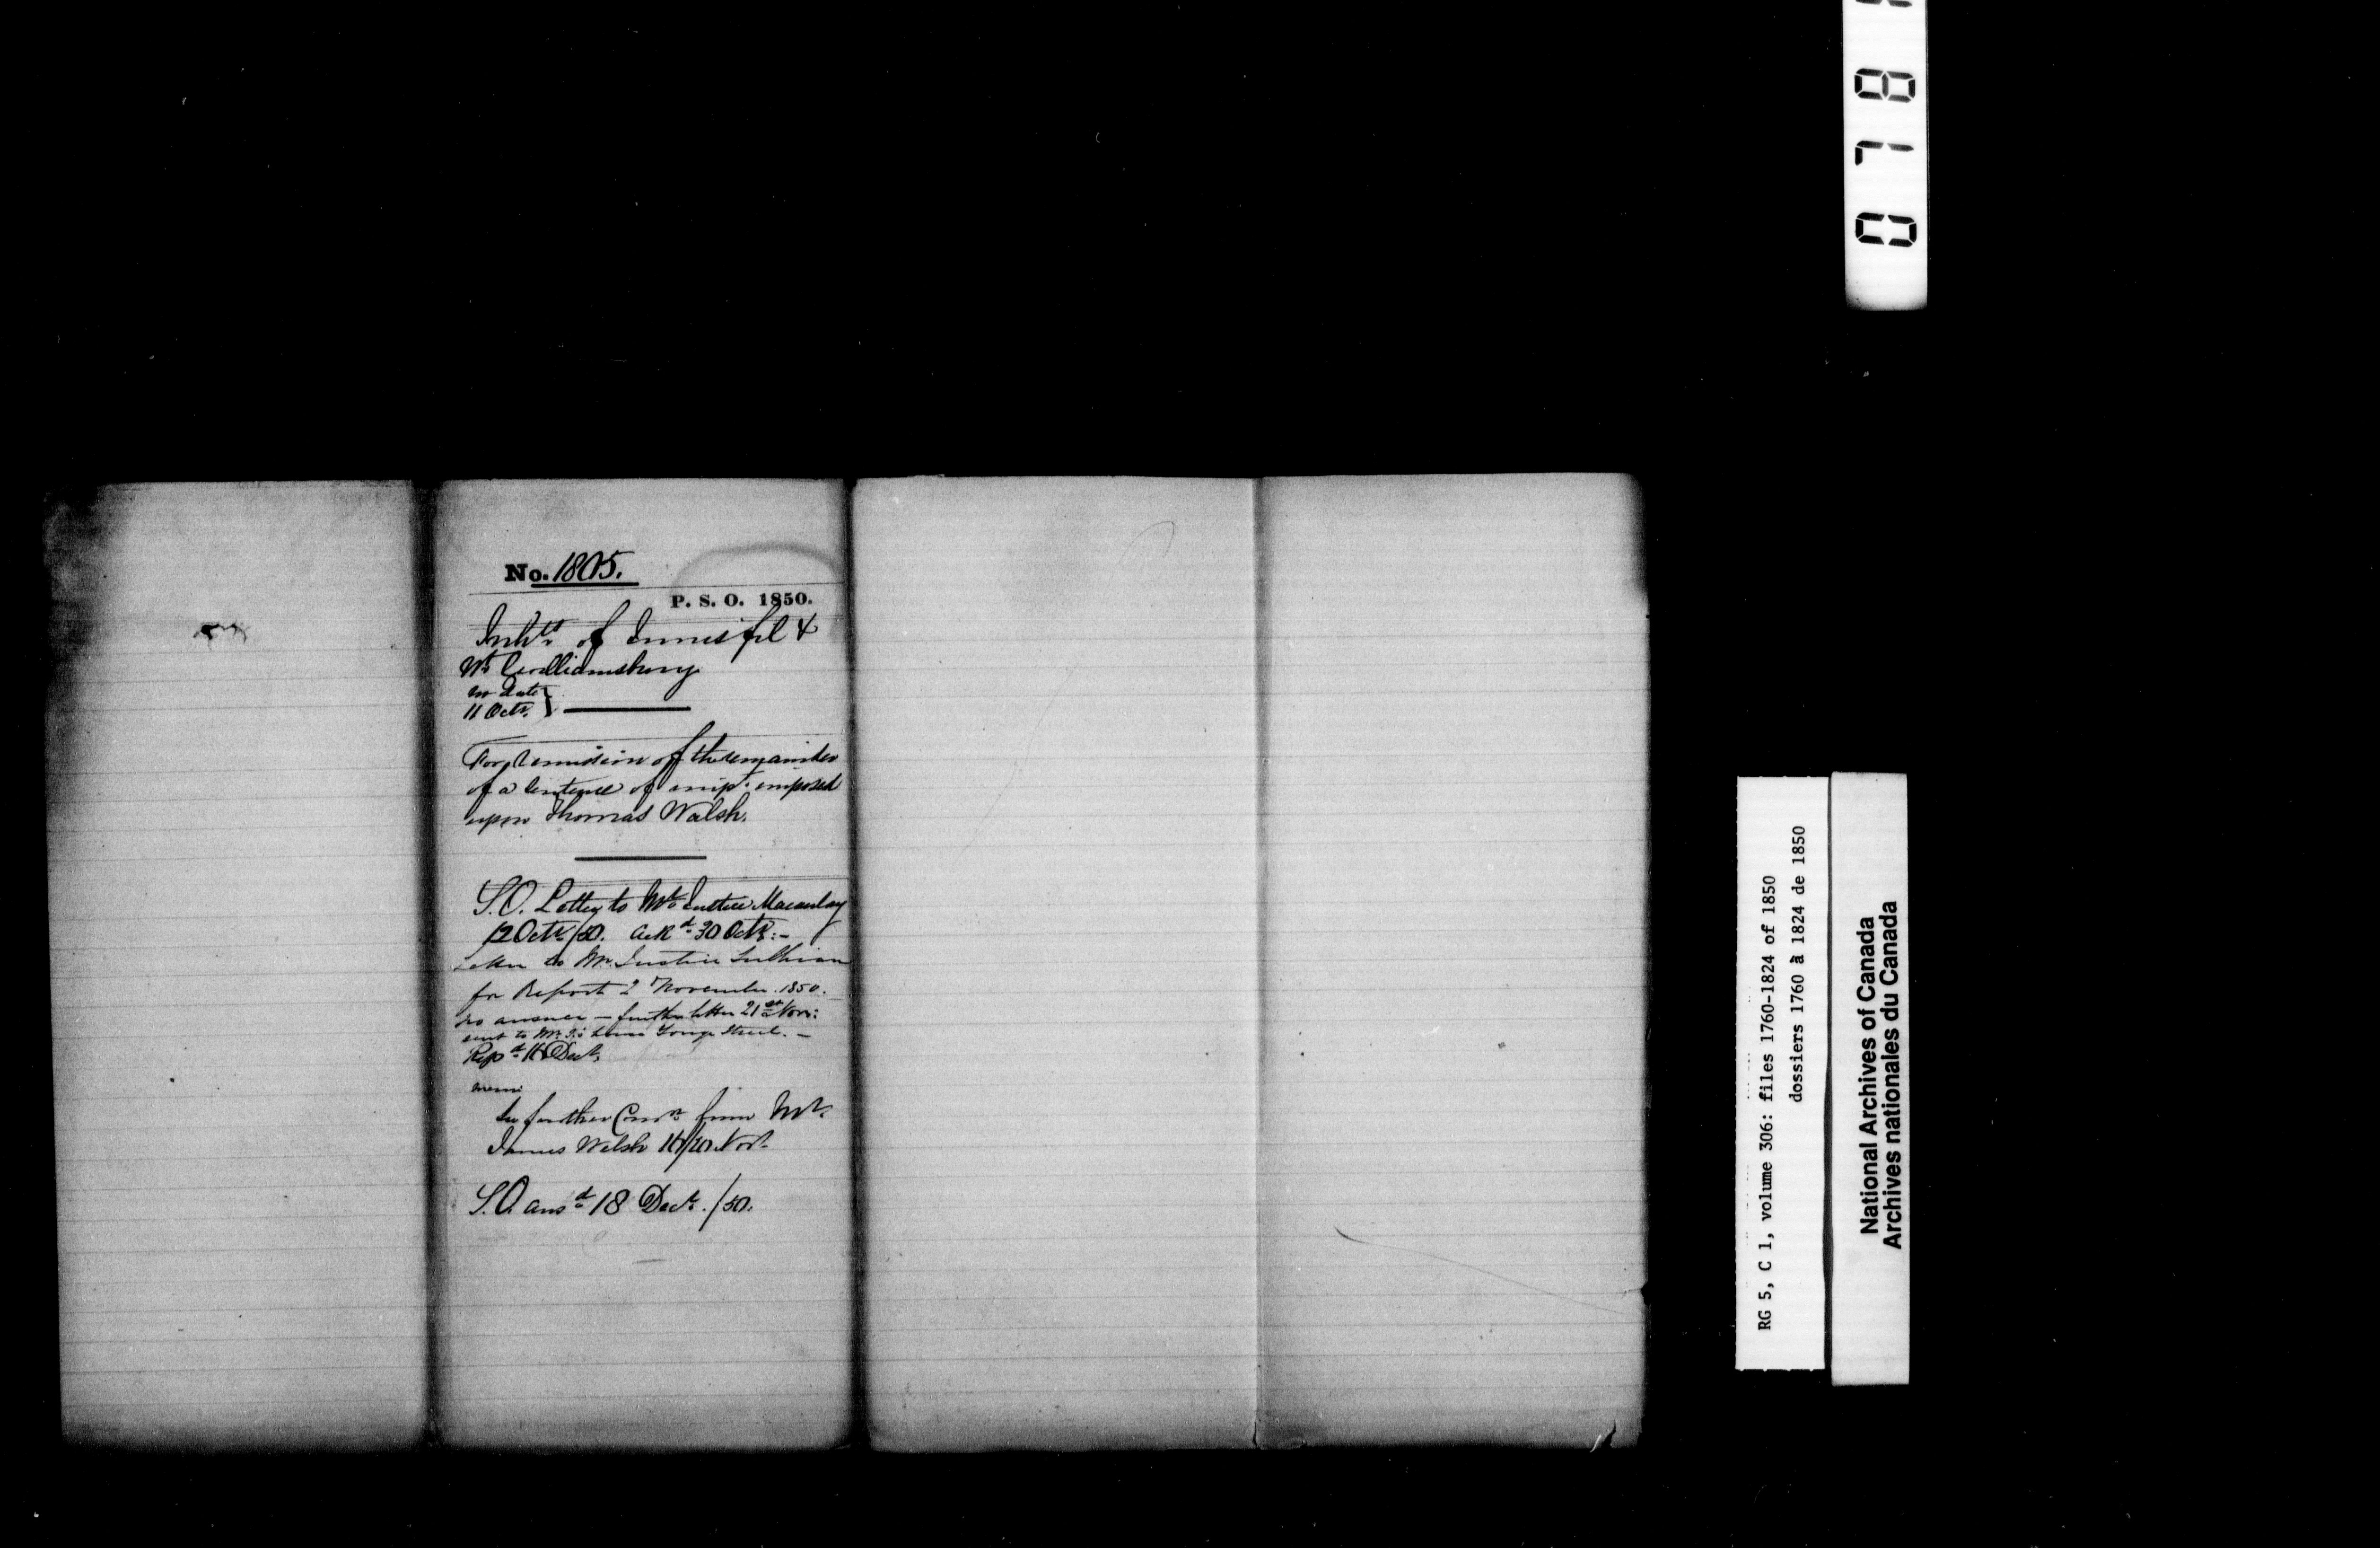 No. 1805.
P. S. O. 1850.
Inhts of Innisfil &
Wt Gwillimsbury
no date
11 Octr.
For remission of the remainder
of a sentence of impt. imposed
upon Thomas Walsh.
S.O. Letter to Mr. Justice Macaulay
12 Octr/50. Ackd 30 Octr:-
Letter to Mr. Justice Sullivan
for Report 2 November 1850.
no answer — further letter 21st Novr:
sent to Mr. S's house Yonge Street. —
Repd 16 Decr.
memo
See further Comn from Mr.
James Walsh 16/20 Novr
S.O. ansd 18 Decr. /50.
0781
RG 5, C 1, volume 306: files 1760-1824 of 1850
dossiers 1760 à 1824 de 1850
National Archives of Canada
Archives nationales du Canada